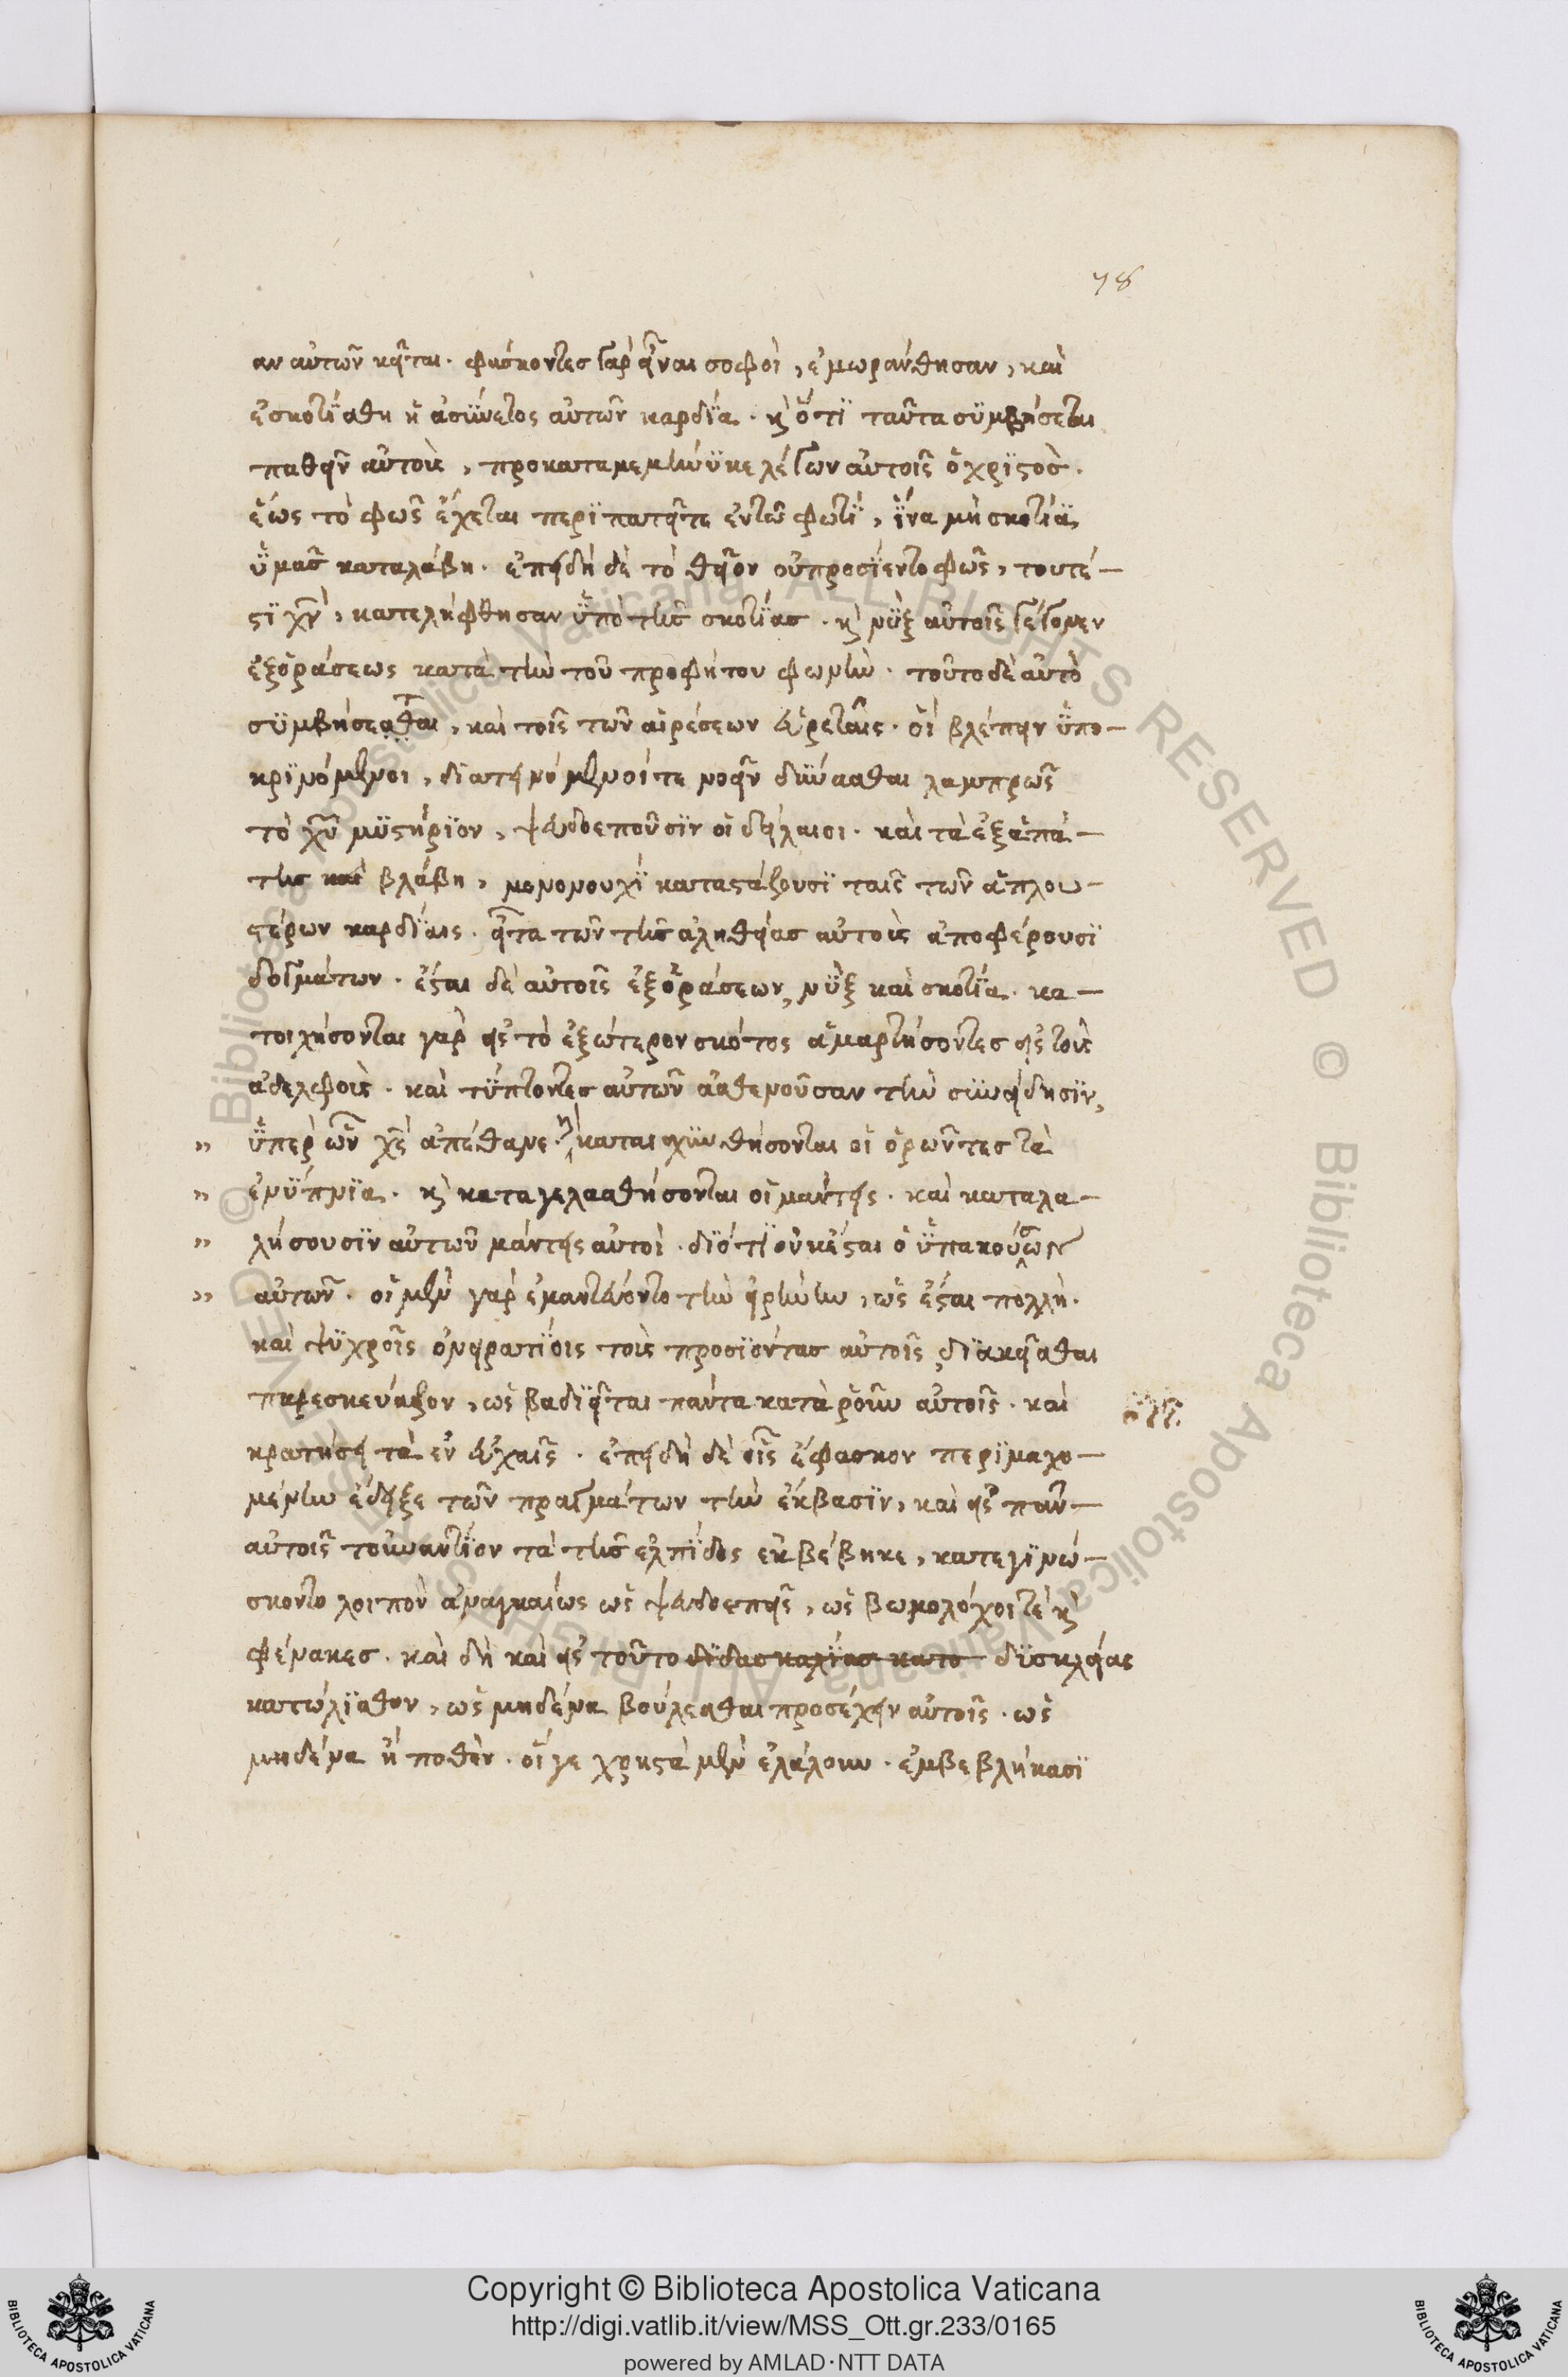 78
αν αὐτῶν κεῖται. φάσκοντες γὰρ εἶναι σοφοὶ, ἐμωράνθησαν, καὶ
ἐσκοτίσθη ἡ ἀσύνετος αὐτῶν καρδία. κ̀ ὅτι ταῦτα συμβήσεται
παθεῖν αὐτοὺς, προκαταμεμήνυκε λέγων αὐτοῖς ὁ χριστὸς.
ἕως τὸ φῶς ἔχεται περιπατεῖτε ἐν τῶ φωτὶ, ἵνα μὴ σκοτία
ὑμᾶς καταλάβη. ἐπειδὴ δὲ τὸ θεῖον οὐ προσίεντο φῶς, τουτέ-
στι χν̀, κατελήφθησαν ὑπὸ τῆς σκοτίας. κ̀ νὺξ αὐτοῖς γέγονεν
ἐξ ὁράσεως κατὰ τὴν τοῦ προφήτου φωνὴν. τοῦτο δὲ αὐτὸ
συμβήσεσθαι, καὶ τοῖς τῶν αἱρέσεων εὑρεταῖς. οἳ βλέπειν ὑπο-
κρινόμενοι, διατεινόμενοί τε νοεῖν δύνασθαι λαμπρῶς
τὸ χῦ μυστήριον, ψευδοεποῦσιν οἱ δείλαιοι. καὶ τὰ ἐξ ἀπά-
της καὶ βλάβη, μονονουχὶ καταστάζουσι ταῖς τῶν ἁπλου-
στέρων καρδίαις. εἶτα τῶν τῆς ἀληθείας αὐτοὺς ἀποφέρουσι
δογμάτων. ἔσται δὲ αὐτοῖς ἐξ ὁράσεων, νὺξ καὶ σκοτία. κα-
τοιχήσονται γὰρ εἰς τὸ ἐξώτερον σκότος ἁμαρτήσοντες εἰς τοὺς
ἀδελφοὺς. καὶ τύπτοντες αὐτῶν ἀσθενοῦσαν τὴν συνείδησιν,
" ὑπὲρ ὧν χς̀ ἀπέθανε. κ̀ καταισχυνθήσονται οἱ ὁρῶντες τὰ
" ἐνύπνια. κ̀ καταγελασθήσονται οἱ μάντεις. καὶ καταλα-
" λήσουσιν αὐτῶν μάντεις αὐτοὶ. διότι οὐκ ἔσται ὁ ὑπακούσων
" αὐτῶν. οἱ μὲν γὰρ ἐμαντεύοντο τὴν εἰρήνην, ὡς ἔσται πολλὴ.
καὶ ψυχροῖς ὀνειρατίοις τοὺς προσιόντας αὐτοῖς, διακεῖσθαι
παρεσκεύαζον, ὡς βαδιεῖται πάντα κατὰ ῥοῦν αὐτοῖς. καὶ
κρατήσει τὰ ἐν εὐχαῖς. ἐπειδὴ δὲ οἷς ἔφασκον περιμαχο-
μένην ἔδειξε τῶν πραγμάτων τὴν ἔκβασιν, καὶ εἰς πᾶν-
αὐτοῖς τοὐναντίον τὰ τῆς ἐλπίδος ἐκβέβηκε, κατεγινώ-
σκοντο λοιπὸν ἀναγκαίως ὡς ψευδοεπεῖς, ὡς βωμολόχοι τὲ κ̀
φένακες. καὶ δὴ καὶ εἰς τοῦτο διδασκαλίας κατο- δυσκλείας
κατώλισθον, ὡς μηδένα βούλεσθαι προσέχειν αὐτοῖς. ὡς
μηδένα ἤ ποθὲν. οἵ γε χρηστὰ μὲν ἐλάλουν. ἐμβεβλήκασι
Copyright © Biblioteca Apostolica Vaticana
http://digi.vatlib.it/view/MSS_Ott.gr.233/0165
powered by AMLAD·NTT DATA